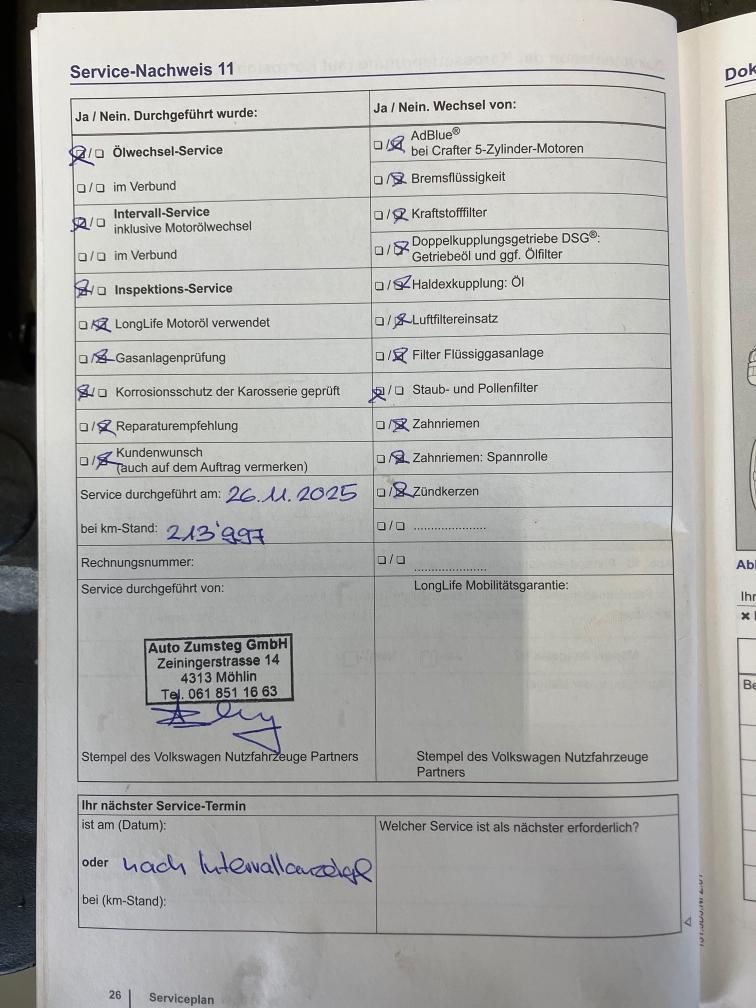 Service-Nachweis 11
Ja / Nein. Durchgeführt wurde:
Ölwechsel-Service
im Verbund
Intervall-Service
inklusive Motorölwechsel
im Verbund
Inspektions-Service
LongLife Motoröl verwendet
Gasanlagenprüfung
Korrosionsschutz der Karosserie geprüft
Reparaturempfehlung
Kundenwunsch
(auch auf dem Auftrag vermerken)
Service durchgeführt am: 26.11.2025
bei km-Stand: 213'997
Rechnungsnummer:
Service durchgeführt von:
Auto Zumsteg GmbH
Zeiningerstrasse 14
4313 Möhlin
Tel. 061 851 16 63
Stempel des Volkswagen Nutzfahrzeuge Partners
Ja / Nein. Wechsel von:
AdBlue®
bei Crafter 5-Zylinder-Motoren
Bremsflüssigkeit
Kraftstofffilter
Doppelkupplungsgetriebe DSG®:
Getriebeöl und ggf. Ölfilter
Haldexkupplung: Öl
Luftfiltereinsatz
Filter Flüssiggasanlage
Staub- und Pollenfilter
Zahnriemen
Zahnriemen: Spannrolle
Zündkerzen
LongLife Mobilitätsgarantie:
Stempel des Volkswagen Nutzfahrzeuge
Partners
Ihr nächster Service-Termin
ist am (Datum):
oder nach Intervallanzeige
bei (km-Stand):
Welcher Service ist als nächster erforderlich?
26 | Serviceplan
Dok
Ihr